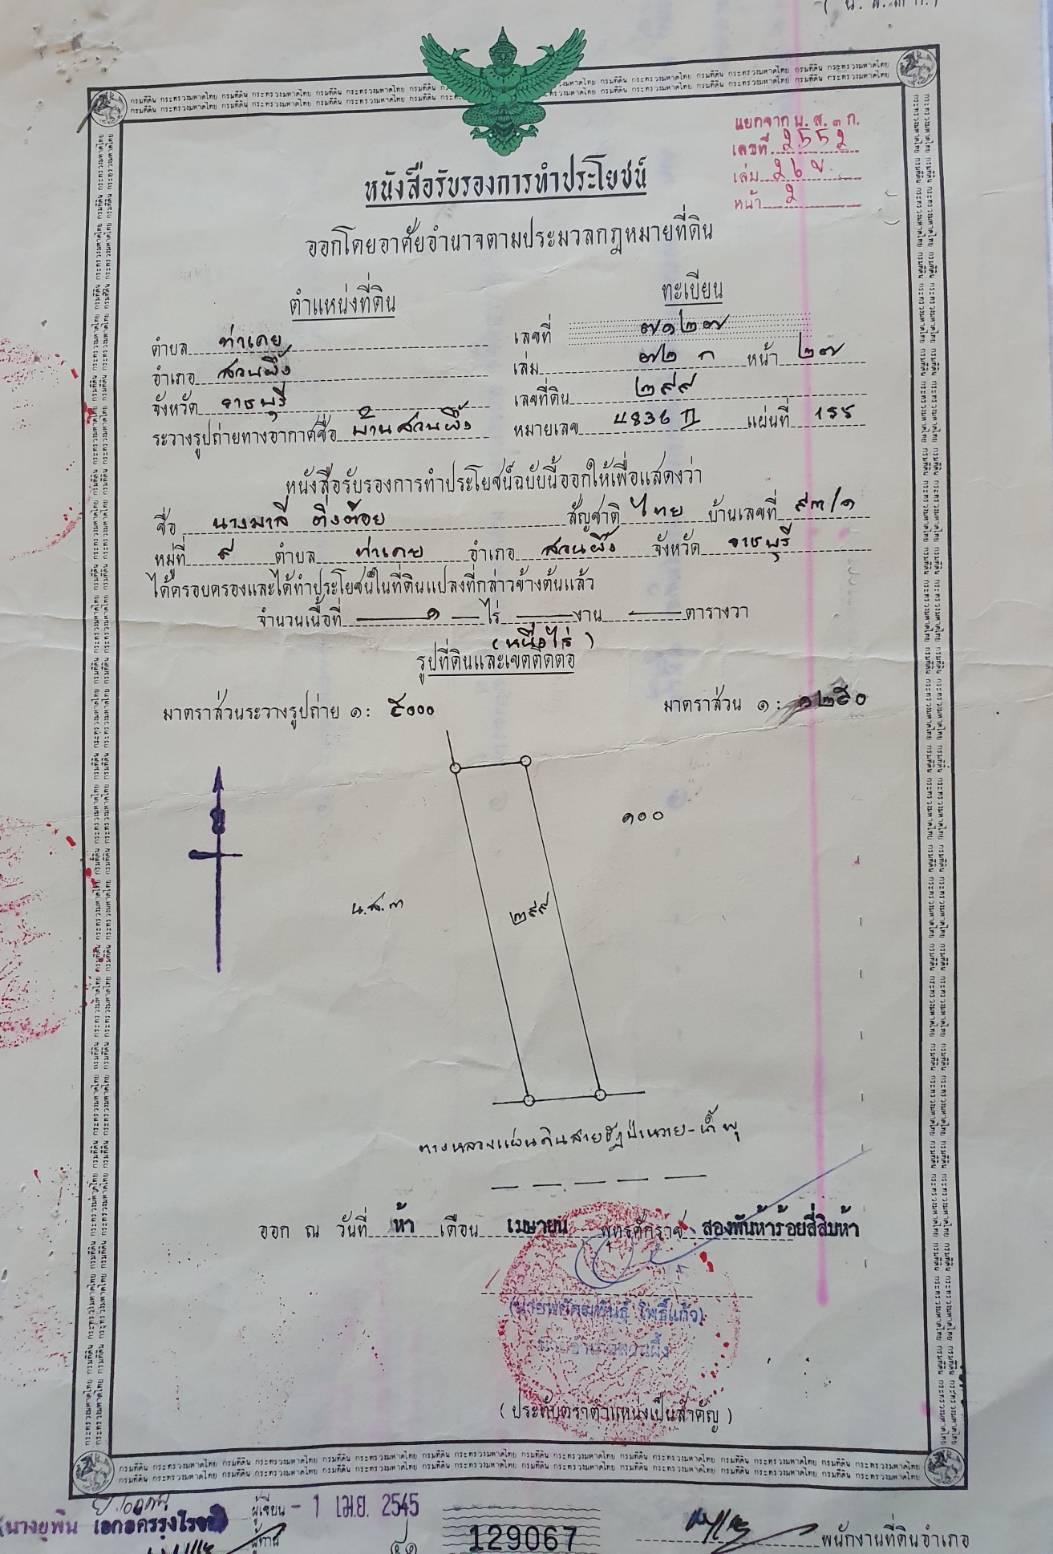 แยกจาก น.ส.๓ ก.
เลขที่ 2552
เล่ม 26 ข
หน้า 2
หนังสือรับรองการทำประโยชน์
ออกโดยอาศัยอำนาจตามประมวลกฎหมายที่ดิน
ตำแหน่งที่ดิน ทะเบียน
ตำบล ท่าเคย เลขที่ ๗๑๒๗
อำเภอ สวนผึ้ง เล่ม ๗๒ ก หน้า ๒๗
จังหวัด ราชบุรี เลขที่ดิน ๒๙๙
ระวางรูปถ่ายทางอากาศชื่อ บ้านสวนผึ้ง หมายเลข 4836 II แผ่นที่ 155
หนังสือรับรองการทำประโยชน์ฉบับนี้ออกให้เพื่อแสดงว่า
ชื่อ นางมาลี ติ่งต้อย สัญชาติ ไทย บ้านเลขที่ ๙๓/๑
หมู่ที่ ๙ ตำบล ท่าเคย อำเภอ สวนผึ้ง จังหวัด ราชบุรี
ได้ครอบครองและได้ทำประโยชน์ในที่ดินแปลงที่กล่าวข้างต้นแล้ว
จำนวนเนื้อที่ ๑ ไร่ งาน ตารางวา
(หนึ่งไร่)
รูปที่ดินและเขตติดต่อ
มาตราส่วนระวางรูปถ่าย ๑: ๕๐๐๐ มาตราส่วน ๑: ๑๒๕๐
๑๐๐
น.ส.๓
๒๙๙
ทางหลวงแผ่นดินสาย
ออก ณ วันที่ ห้า เดือน เมษายน พุทธศักราช สองพันห้าร้อยสี่สิบห้า
โพธิ์แก้ว)
นายอำเภอสวนผึ้ง
(ประทับตราตำแหน่งเป็นสำคัญ)
ผู้เขียน - 1 เม.ย. 2545
(นางยุพิน เอกอัครรุ่งโรจน์)
ผู้ทาน
129067
พนักงานที่ดินอำเภอ